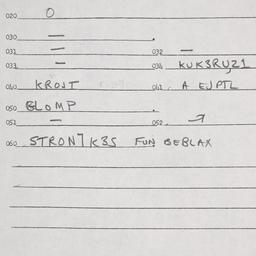 020 O
030 —
031 — 032 —
033 — 034 KUK3RUZ1
040 KROJT 041 A EJPTL
050 GLOMP
051 — 052 →
060 STRON7K3S FUN BEBLAX